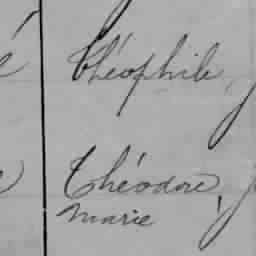 Théophile,
Théodore,
Marie